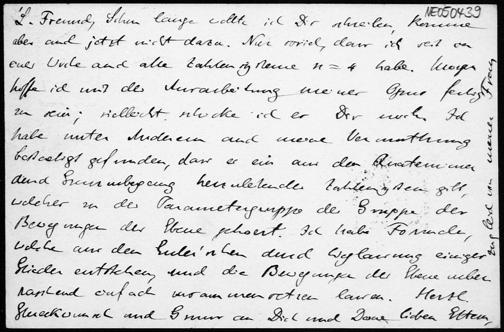 NE050439
L. Freund, Schon lange wollte ich Dir schreiben, komme
aber auch jetzt nicht dazu. Nur soviel, dass ich seit
einer Woche auch alle Zahlensysteme n = 4 habe. Morgen
hoffe ich mit der Ausarbeitung meiner Opus fertig
zu sein; vielleicht schicke ich es Dir noch. Ich
habe unter Anderem auch meine Vermuthung
bestaetigt gefunden, dass es ein aus den Quaternionen
durch Grenzuebergang herzuleitendes Zahlensystem gibt,
welches zu der Parametergruppe der Gruppe der
Bewegungen der Ebene gehoert. Ich habe Formeln,
welche aus den Euler'schen durch Weglassung einiger
Glieder entstehen, und die Bewegungen der Ebene ueber
raschend einfach zusammensetzen lassen. Herzl.
Glueckwunsch und Gruss an Dich und Deine lieben Eltern,
zugleich von meiner Frau